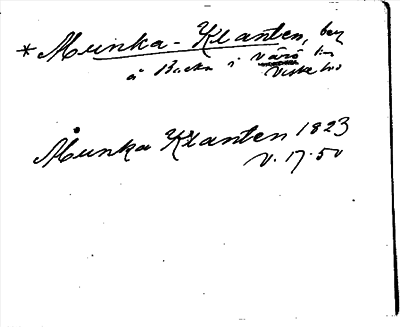 * Munka-Klanten, beg
å Backa i Värö sn
Viske hd
Munka Klanten 1823
v. 17.50